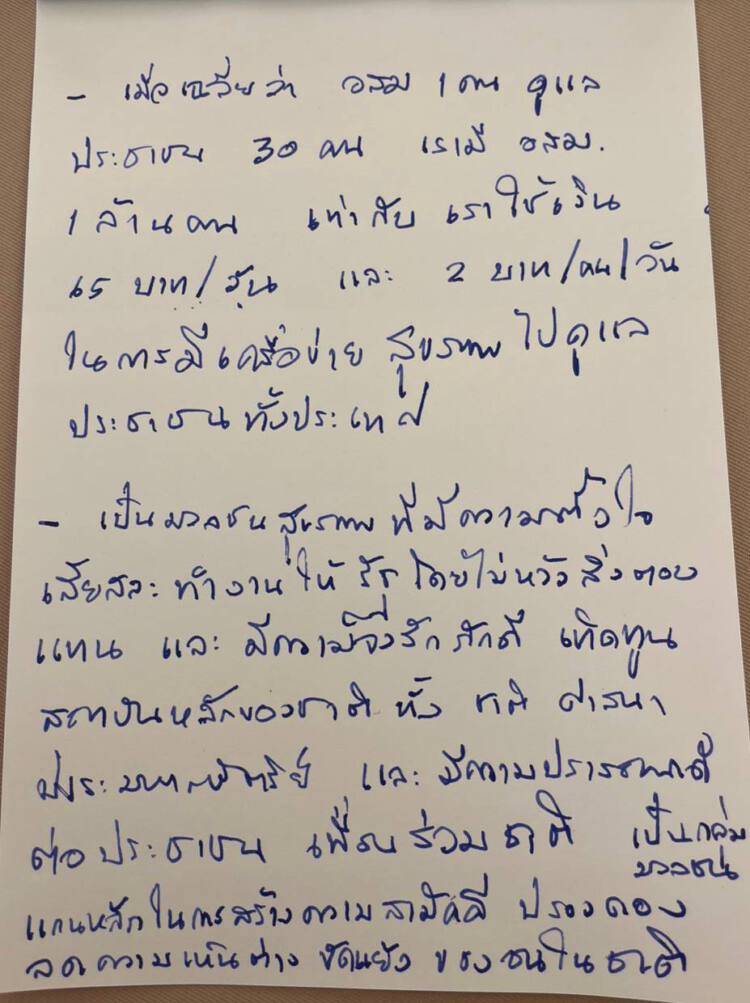 - เมื่อเฉลี่ยว่า อสม 1 คน ดูแล
ประชาชน 30 คน เรามี อสม.
1 ล้านคน เท่ากับ เราใช้เงิน
65 บาท/ และ 2 บาท/คน/วัน
ในการมีเครือข่าย สุขภาพ ไปดูแล
ประชาชนทั้งประเทศ
- เป็นมวลชนสุขภาพ ที่มีความตั้งใจ
เสียสละ ทำงานให้ รัฐ โดยไม่หวังสิ่งตอบ
แทน และ มีความจงรักภักดี เทิดทูน
สถาบันหลักของชาติ ทั้ง ชาติ ศาสนา
พระมหากษัตริย์ และ มีความปรารถนาดี
ต่อประชาชน เพื่อนร่วมชาติ เป็นกลุ่ม
มวลชน
แกนหลักในการสร้างความสามัคคี ปรองดอง
ลดความเห็นต่าง ขัดแย้ง ของชนในชาติ